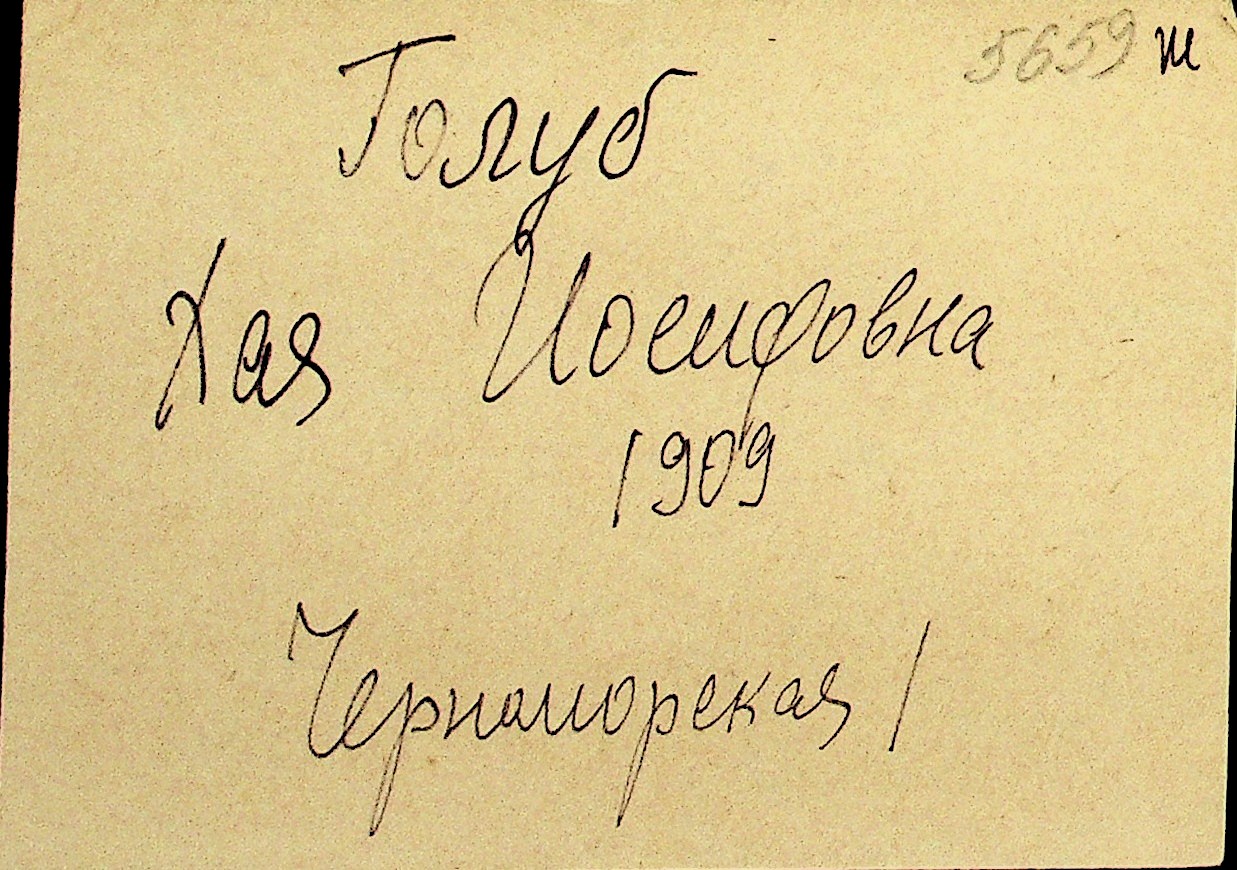 5659 ж
Голуб
Хая Иосифовна
1909
Черноморская 1